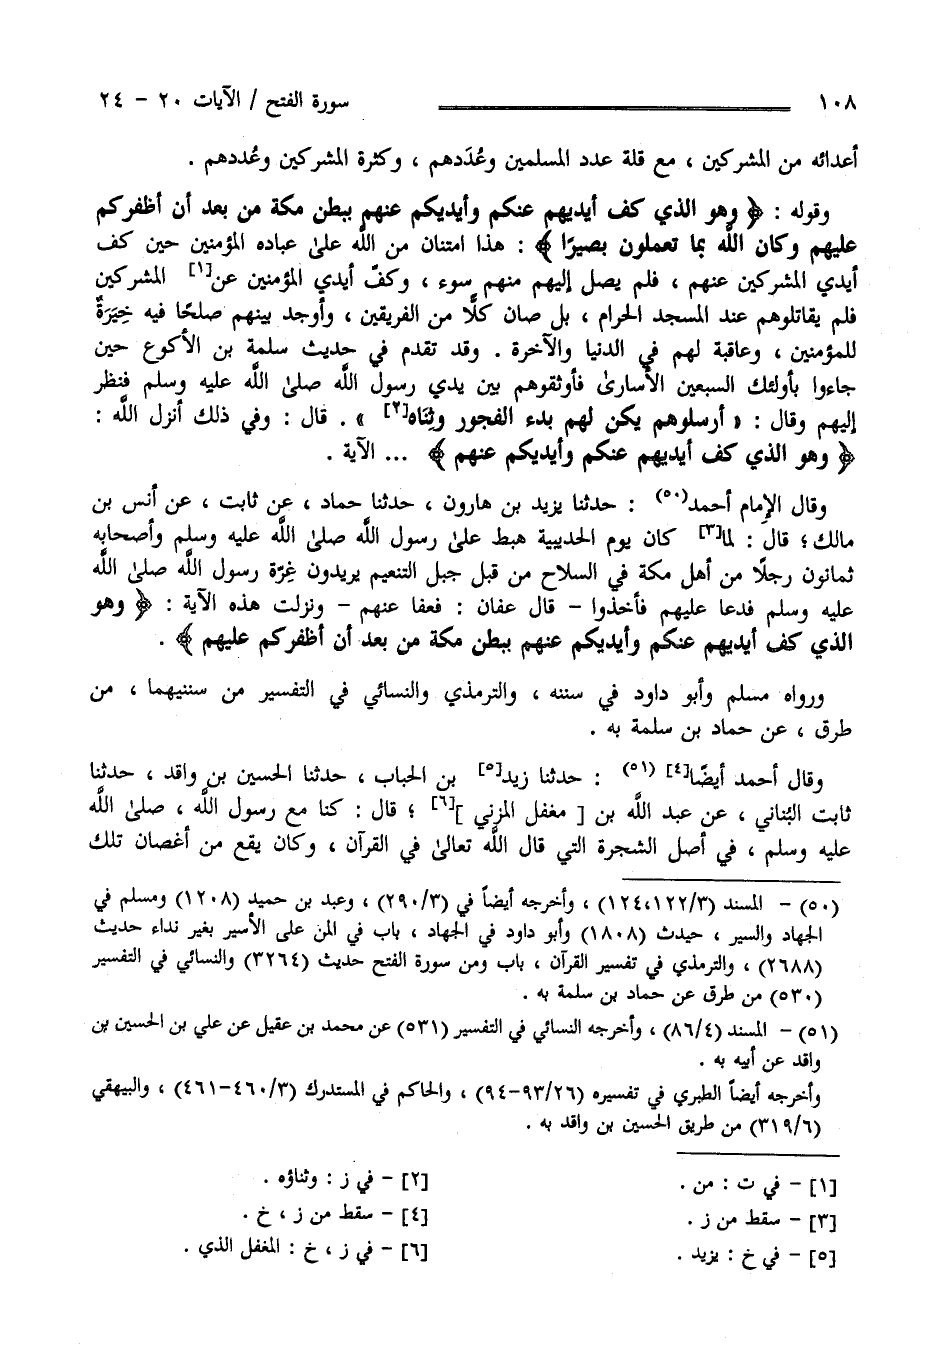 ١٠٨ سورة الفتح / الآيات ٢٠ - ٢٤
أعدائه من المشركين ، مع قلة عدد المسلمين وعُدَدهم ، وكثرة المشركين وعُددهم .
وقوله : ﴿ وهو الذي كف أيديهم عنكم وأيديكم عنهم ببطن مكة من بعد أن أظفركم
عليهم وكان اللَّه بما تعملون بصيرًا ﴾ : هذا امتنان من اللَّه علىٰ عباده المؤمنين حين كف
أيدي المشركين عنهم ، فلم يصل إليهم منهم سوء ، وكفّ أيدي المؤمنين عن[١] المشركين
فلم يقاتلوهم عند المسجد الحرام ، بل صان كلًّا من الفريقين ، وأوجد بينهم صلحًا فيه خِيَرَةٌ
للمؤمنين ، وعاقبة لهم في الدنيا والآخرة . وقد تقدم في حديث سلمة بن الأكوع حين
جاءوا بأولئك السبعين الأسارىٰ فأوثقوهم بين يدي رسول اللَّه صلىٰ اللَّه عليه وسلم فنظر
إليهم وقال : « أرسلوهم يكن لهم بدء الفجور وثِنَاه[٢] » . قال : وفي ذلك أنزل اللَّه :
﴿ وهو الذي كف أيديهم عنكم وأيديكم عنهم ﴾ ... الآية .
وقال الإمام أحمد(٥٠) : حدثنا يزيد بن هارون ، حدثنا حماد ، عن ثابت ، عن أنس بن
مالك؛ قال : لما[٣] كان يوم الحديبية هبط علىٰ رسول اللَّه صلىٰ اللَّه عليه وسلم وأصحابه
ثمانون رجلًا من أهل مكة في السلاح من قبل جبل التنعيم يريدون غِرّة رسول اللَّه صلىٰ اللَّه
عليه وسلم فدعا عليهم فأخذوا – قال عفان : فعفا عنهم – ونزلت هذه الآية : ﴿ وهو
الذي كف أيديهم عنكم وأيديكم عنهم ببطن مكة من بعد أن أظفركم عليهم ﴾ .
ورواه مسلم وأبو داود في سننه ، والترمذي والنسائي في التفسير من سننيهما ، من
طرق ، عن حماد بن سلمة به .
وقال أحمد أيضًا[٤] (٥١) : حدثنا زيد[٥] بن الحباب ، حدثنا الحسين بن واقد ، حدثنا
ثابت البُناني ، عن عبد اللَّه بن [ مغفل المزني ][٦] ؛ قال : كنا مع رسول اللَّه ، صلىٰ اللَّه
عليه وسلم ، في أصل الشجرة التي قال اللَّه تعالىٰ في القرآن ، وكان يقع من أغصان تلك
(٥٠) – المسند (١٢٤،١٢٢/٣) ، وأخرجه أيضاً في (٢٩٠/٣) ، وعبد بن حميد (١٢٠٨) ومسلم في
الجهاد والسير ، حيدث (١٨٠٨) وأبو داود في الجهاد ، باب في المن على الأسير بغير نداء حديث
(٢٦٨٨) ، والترمذي في تفسير القرآن ، باب ومن سورة الفتح حديث (٣٢٦٤) والنسائي في التفسير
(٥٣٠) من طرق عن حماد بن سلمة به .
(٥١) – المسند (٨٦/٤) ، وأخرجه النسائي في التفسير (٥٣١) عن محمد بن عقيل عن علي بن الحسين بن
واقد عن أبيه به .
وأخرجه أيضاً الطبري في تفسيره (٩٣/٢٦-٩٤) ، والحاكم في المستدرك (٤٦٠/٣-٤٦١) ، والبيهقي
(٣١٩/٦) من طريق الحسين بن واقد به .
[١] – في ت : من . [٢] – في ز : وثناؤه .
[٣] – سقط من ز . [٤] – سقط من ز ، خ .
[٥] – في خ : يزيد . [٦] – في ز ، خ : المغفل الذي .